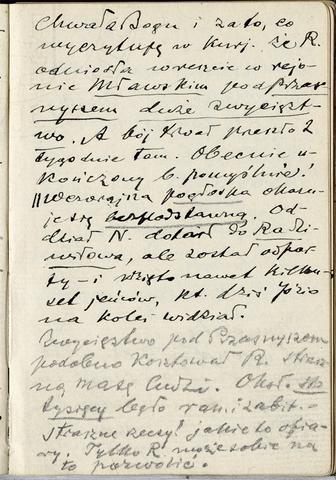 Chwała Bogu i za to, co
wyczytuję w Kurj. że R.
odniosła wreszcie w rejo-
nie Mławskim pod Przas-
nyszem duże zwycięzt-
wo. A bój trwał przeszło 2
tygodnie tam. Obecnie u-
kończony b. pomyślnie!
Wczorajsza pogłoska okazu-
je się bezpodstawną. Od-
dział N. dotarł do Radzi-
wiłowa, ale został odpar-
ty – i wzięto nawet kilku-
set jeńców, kt. dziś Józio
na kolei widział.
Zwycięstwo pod Przasnyszem
podobno kosztował R. strasz-
ną masę ludzi. Około sto
tysięcy legło ran. i zabit. –
straszne rzeczy! jakie to ofia-
ry. Tylko R. może sobie na
to pozwolić.